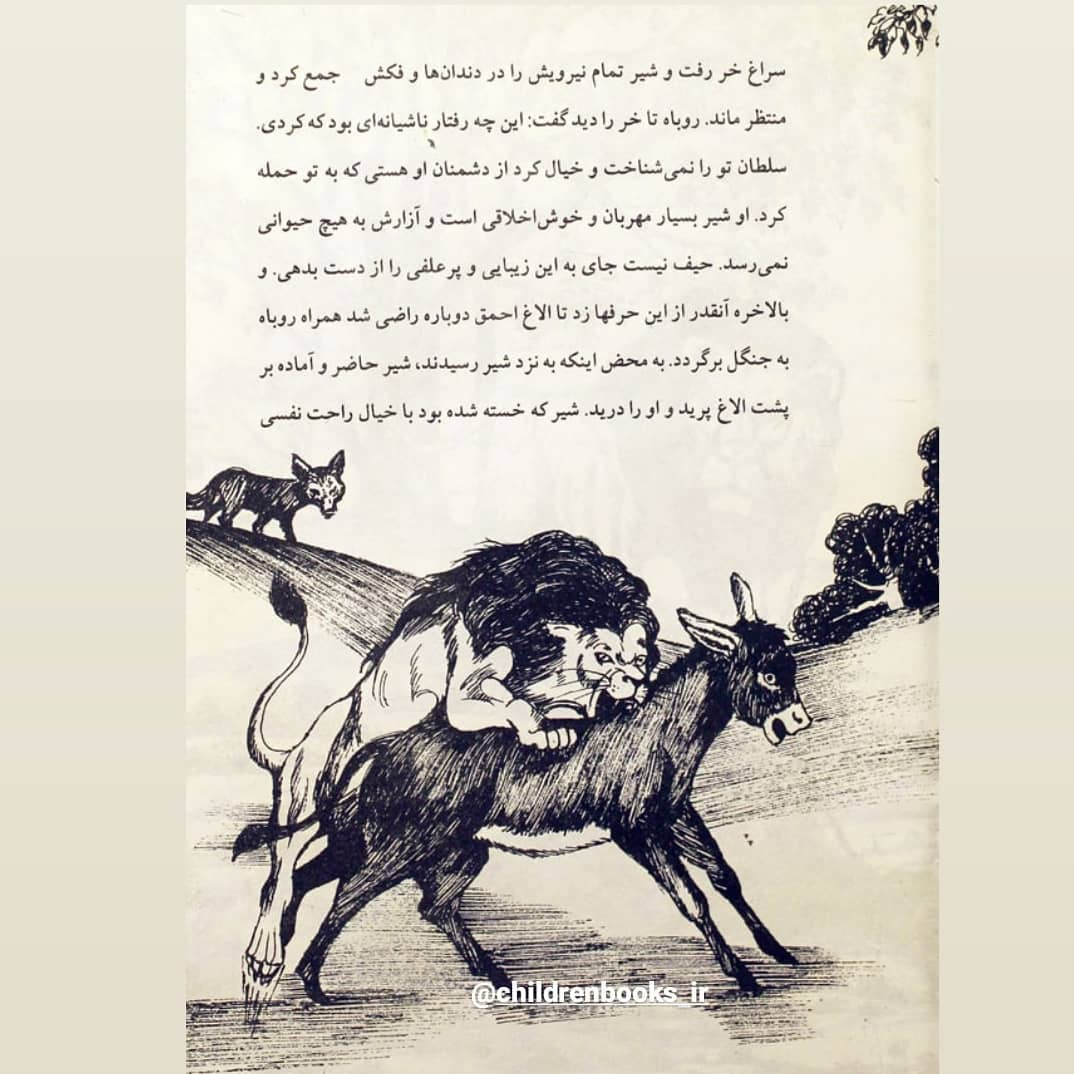 سراغ خر رفت و شیر تمام نیرویش را در دندان‌ها و فکش جمع کرد و
منتظر ماند. روباه تا خر را دید گفت: این چه رفتار ناشیانه‌ای بود که کردی.
سلطان تو را نمی‌شناخت و خیال کرد از دشمنان او هستی که به تو حمله
کرد. او شیر بسیار مهربان و خوش‌اخلاقی است و آزارش به هیچ حیوانی
نمی‌رسد. حیف نیست جای به این زیبایی و پرعلفی را از دست بدهی. و
بالاخره آنقدر از این حرفها زد تا الاغ احمق دوباره راضی شد همراه روباه
به جنگل برگردد. به محض اینکه به نزد شیر رسیدند، شیر حاضر و آماده بر
پشت الاغ پرید و او را درید. شیر که خسته شده بود با خیال راحت نفسی
@childrenbooks_ir